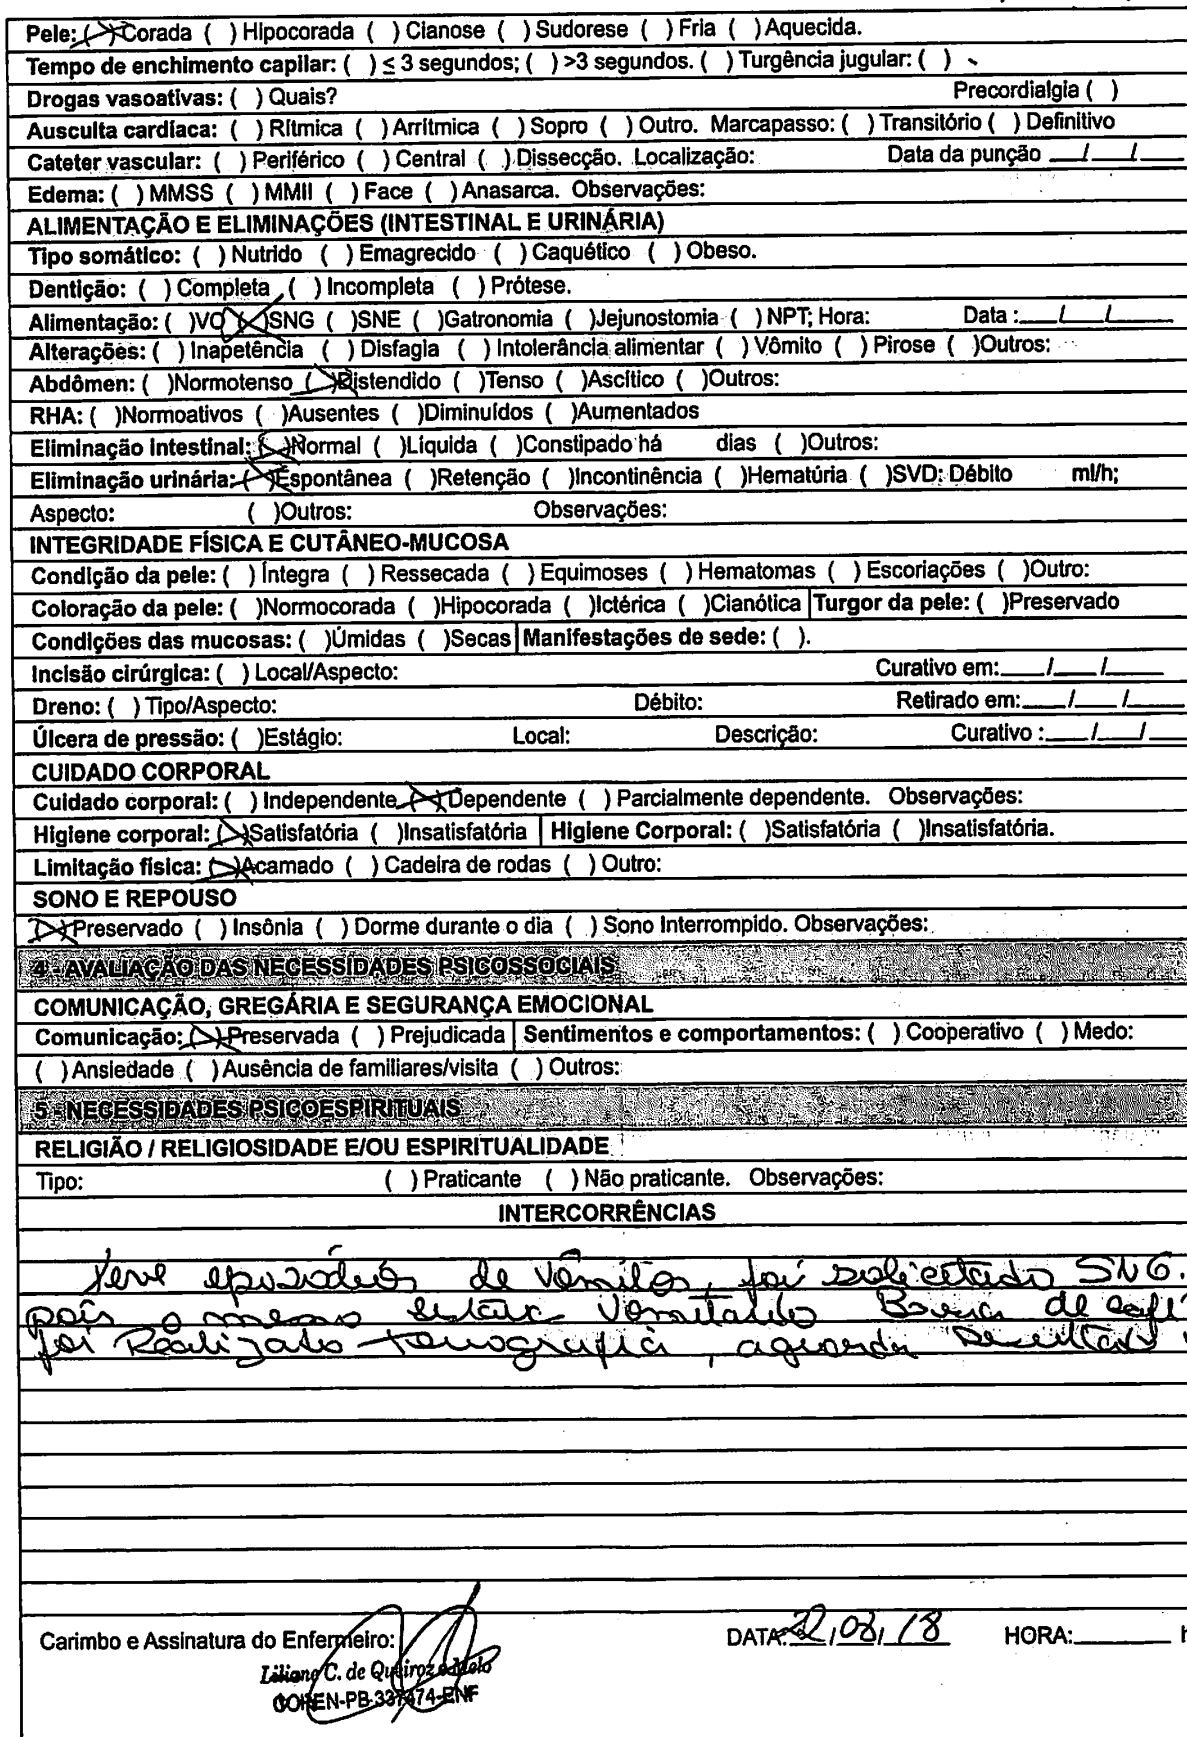 Pele: (X) Corada ( ) Hipocorada ( ) Cianose ( ) Sudorese ( ) Fria ( ) Aquecida.
Tempo de enchimento capilar: ( ) ≤ 3 segundos; ( ) >3 segundos. ( ) Turgência jugular: ( )
Drogas vasoativas: ( ) Quais? Precordialgia ( )
Ausculta cardíaca: ( ) Rítmica ( ) Arrítmica ( ) Sopro ( ) Outro. Marcapasso: ( ) Transitório ( ) Definitivo
Cateter vascular: ( ) Periférico ( ) Central ( ) Dissecção. Localização: Data da punção ___/___/___
Edema: ( ) MMSS ( ) MMII ( ) Face ( ) Anasarca. Observações:
ALIMENTAÇÃO E ELIMINAÇÕES (INTESTINAL E URINÁRIA)
Tipo somático: ( ) Nutrido ( ) Emagrecido ( ) Caquético ( ) Obeso.
Dentição: ( ) Completa ( ) Incompleta ( ) Prótese.
Alimentação: ( )VO (X)SNG ( )SNE ( )Gatronomia ( )Jejunostomia ( ) NPT; Hora: Data :___/___/___
Alterações: ( ) Inapetência ( ) Disfagia ( ) Intolerância alimentar ( ) Vômito ( ) Pirose ( )Outros:
Abdômen: ( )Normotenso (X)Distendido ( )Tenso ( )Ascítico ( )Outros:
RHA: ( )Normoativos ( )Ausentes ( )Diminuídos ( )Aumentados
Eliminação intestinal: (X)Normal ( )Líquida ( )Constipado há dias ( )Outros:
Eliminação urinária: (X)Espontânea ( )Retenção ( )Incontinência ( )Hematúria ( )SVD; Débito ml/h;
Aspecto: ( )Outros: Observações:
INTEGRIDADE FÍSICA E CUTÂNEO-MUCOSA
Condição da pele: ( ) Íntegra ( ) Ressecada ( ) Equimoses ( ) Hematomas ( ) Escoriações ( )Outro:
Coloração da pele: ( )Normocorada ( )Hipocorada ( )Ictérica ( )Cianótica Turgor da pele: ( )Preservado
Condições das mucosas: ( )Úmidas ( )Secas Manifestações de sede: ( ).
Incisão cirúrgica: ( ) Local/Aspecto: Curativo em:___/___/___
Dreno: ( ) Tipo/Aspecto: Débito: Retirado em:___/___/___
Úlcera de pressão: ( )Estágio: Local: Descrição: Curativo :___/___/___
CUIDADO CORPORAL
Cuidado corporal: ( ) Independente (X) Dependente ( ) Parcialmente dependente. Observações:
Higiene corporal: (X)Satisfatória ( )Insatisfatória Higiene Corporal: ( )Satisfatória ( )Insatisfatória.
Limitação física: (X)Acamado ( ) Cadeira de rodas ( ) Outro:
SONO E REPOUSO
(X)Preservado ( ) Insônia ( ) Dorme durante o dia ( ) Sono Interrompido. Observações:
4 - AVALIAÇÃO DAS NECESSIDADES PSICOSSOCIAIS
COMUNICAÇÃO, GREGÁRIA E SEGURANÇA EMOCIONAL
Comunicação: (X)Preservada ( ) Prejudicada Sentimentos e comportamentos: ( ) Cooperativo ( ) Medo:
( ) Ansiedade ( ) Ausência de familiares/visita ( ) Outros:
5 - NECESSIDADES PSICOESPIRITUAIS
RELIGIÃO / RELIGIOSIDADE E/OU ESPIRITUALIDADE
Tipo: ( ) Praticante ( ) Não praticante. Observações:
INTERCORRÊNCIAS
Teve episódeós de vômitos, foi solicitado SNG.
pois o mesmo estava Vomitando Borra de café
foi Realizado tomografia, aguarda Resultado
Carimbo e Assinatura do Enfermeiro: DATA: 22/08/18 HORA:______ h
Liliane C. de Queiroz e Melo
COREN-PB 337474-ENF